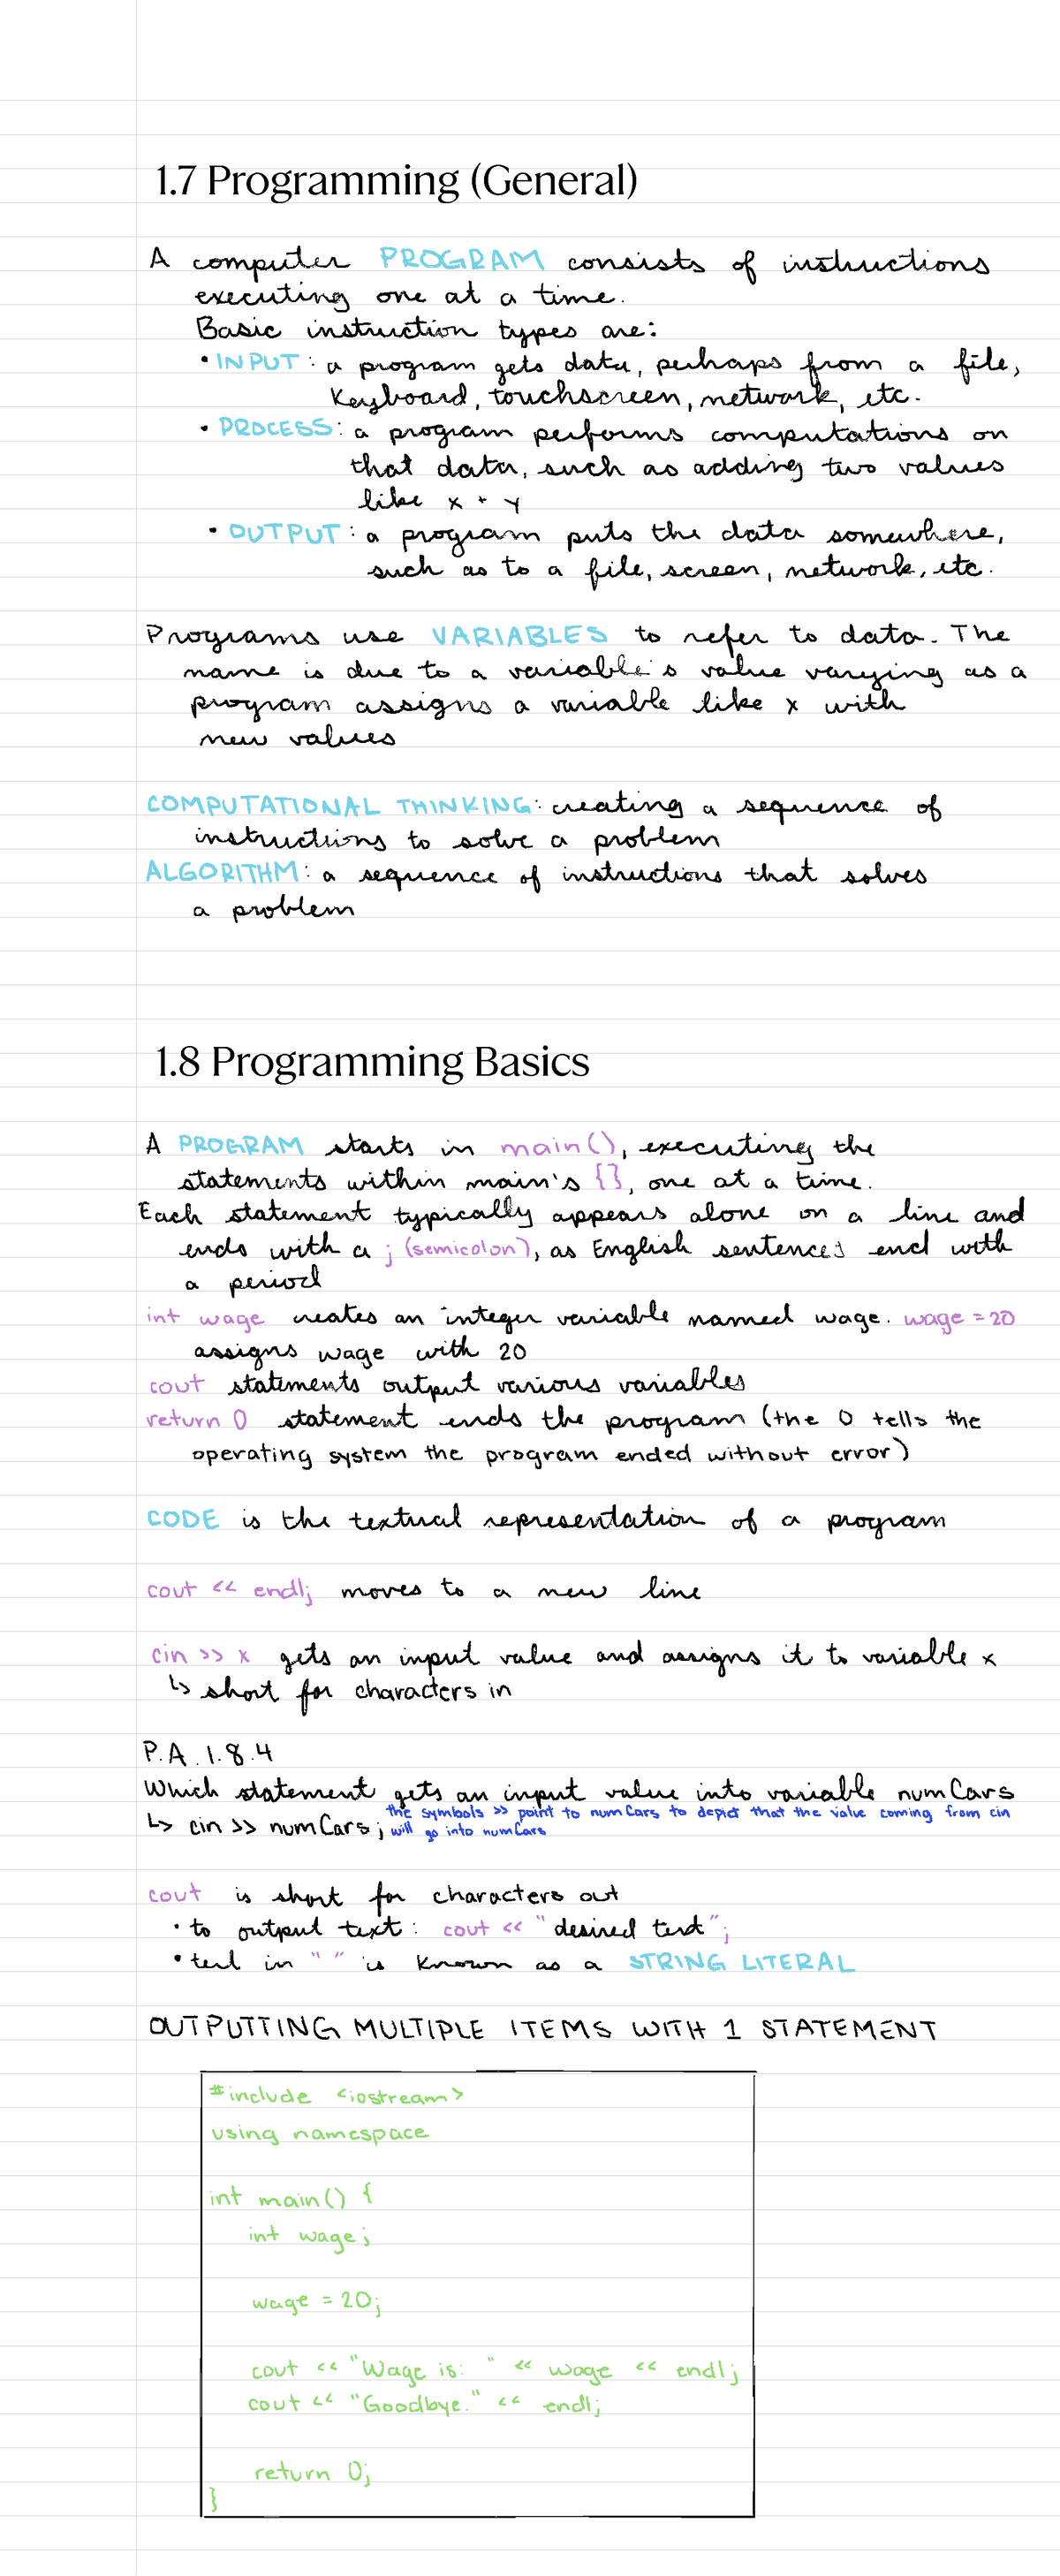 1.7 Programming (General)
A computer PROGRAM consists of instructions
executing one at a time.
Basic instruction types are:
• INPUT: a program gets data, perhaps from a file,
Keyboard, touchscreen, network, etc.
• PROCESS: a program performs computations on
that data, such as adding two values
like x + y
• OUTPUT: a program puts the data somewhere,
such as to a file, screen, network, etc.
Programs use VARIABLES to refer to data. The
name is due to a variable's value varying as a
program assigns a variable like x with
new values
COMPUTATIONAL THINKING: creating a sequence of
instructions to solve a problem
ALGORITHM: a sequence of instructions that solves
a problem
1.8 Programming Basics
A PROGRAM starts in main(), executing the
statements within main's {}, one at a time.
Each statement typically appears alone on a line and
ends with a ; (semicolon), as English sentences end with
a period
int wage creates an integer variable named wage. wage = 20
assigns wage with 20
cout statements output various variables
return 0 statement ends the program (the 0 tells the
operating system the program ended without error)
CODE is the textual representation of a program
cout << endl; moves to a new line
cin >> x gets an input value and assigns it to variable x
↳ short for characters in
P.A. 1.8.4
Which statement gets an input value into variable numCars
↳ cin >> numCars; the symbols >> point to numCars to depict that the value coming from cin
will go into numCars
cout is short for characters out
• to output text: cout << "desired text";
• text in " " is known as a STRING LITERAL
OUTPUTTING MULTIPLE ITEMS WITH 1 STATEMENT
#include <iostream>
using namespace
int main() {
int wage;
wage = 20;
cout << "Wage is: " << wage << endl;
cout << "Goodbye." << endl;
return 0;
}